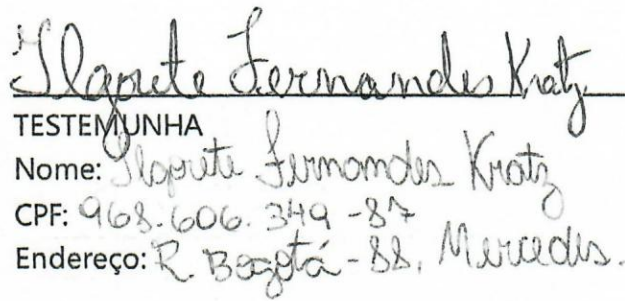 Ilgorete Fernandes Kratz
TESTEMUNHA
Nome: Ilgorete Fernandes Kratz
CPF: 968.606.349-87
Endereço: R. Bogotá - 88, Mercedes.